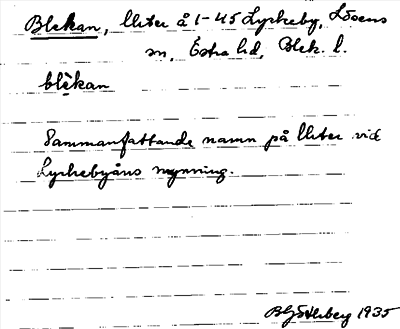 Blekan, lliter å 1-45 Lyckeby, Lösens
sn, Östra hd, Blek. l.
blèkan
Sammanfattande namn på lliter vid
Lyckebyåns mynning.
B Götlberg 1935